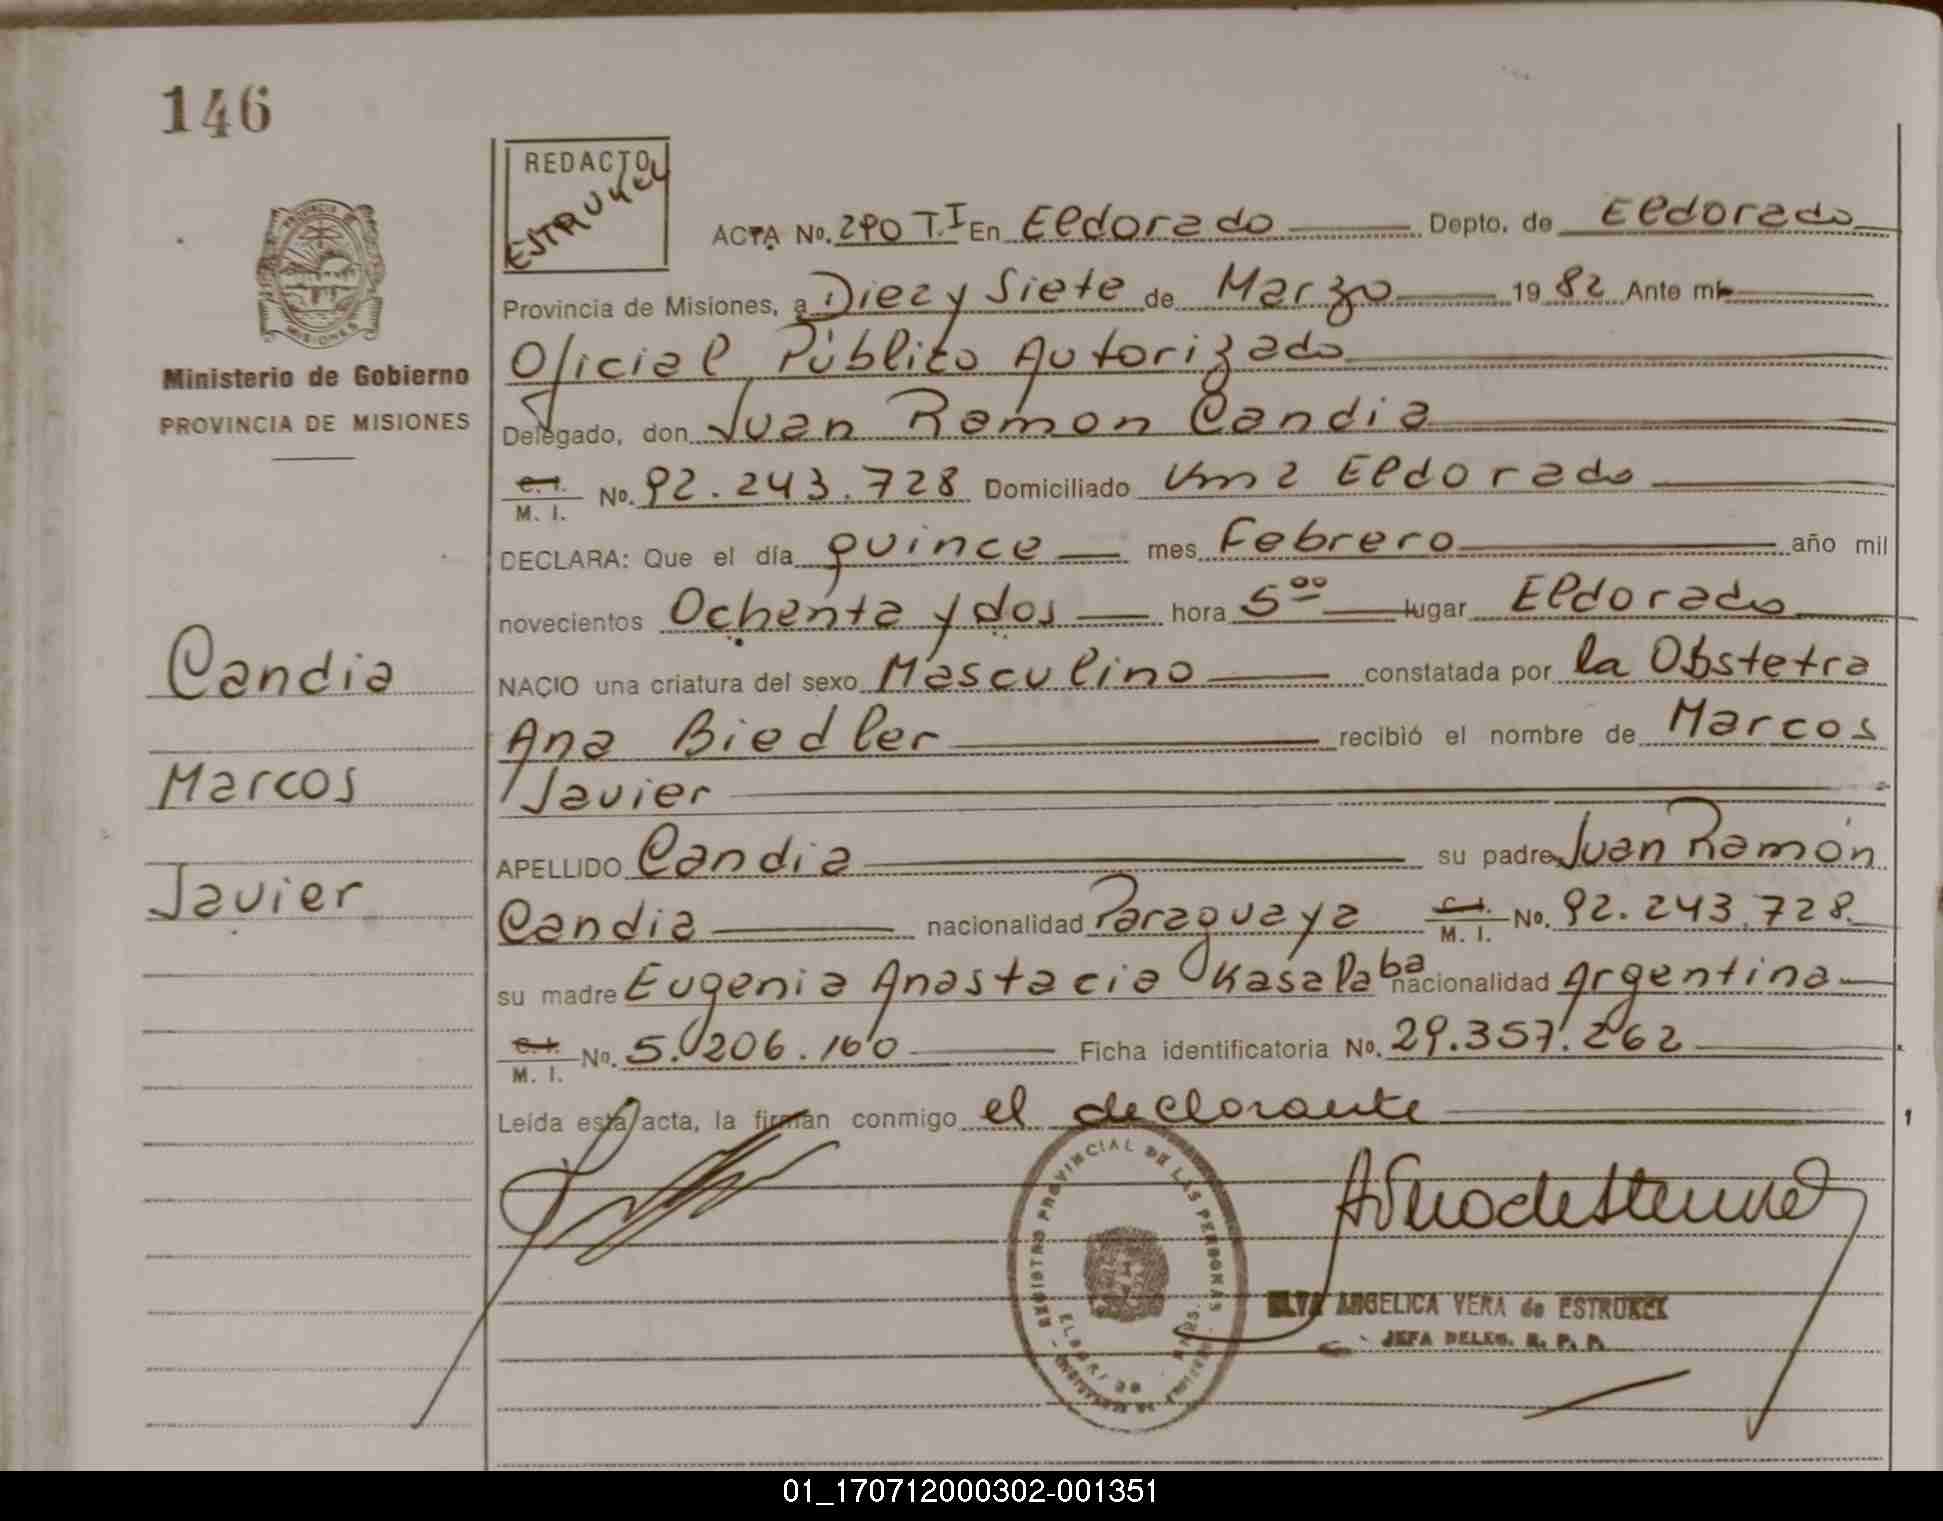 146
REDACTO
ESTRUKEL
ACTA No. 290 T.I En Eldorado Depto. de Eldorado
Provincia de Misiones, a Diez y Siete de Marzo 1982 Ante mi
Oficial Público Autorizado
Ministerio de Gobierno
PROVINCIA DE MISIONES
Delegado, don Juan Ramon Candia
C. I. M. I. No. 92.243.728 Domiciliado Km 2 Eldorado
DECLARA: Que el día quince mes Febrero año mil
novecientos Ochenta y dos hora 5⁰⁰ lugar Eldorado
NACIO una criatura del sexo Masculino constatada por la Obstetra
Ana Biedler recibió el nombre de Marcos
Javier
Candia
Marcos
Javier
APELLIDO Candia su padre Juan Ramón
Candia nacionalidad Paraguaya C. I. M. I. No. 92.243.728
su madre Eugenia Anastacia Kasalaba nacionalidad Argentina
C. I. M. I. No. 5.206.160 Ficha identificatoria No. 29.357.262
Leída esta acta, la firman conmigo el declarante
REGISTRO PROVINCIAL DE LAS PERSONAS
ELVA ANGELICA VERA de ESTRUKEL
JEFA DELEG. R. P. P.
01_170712000302-001351